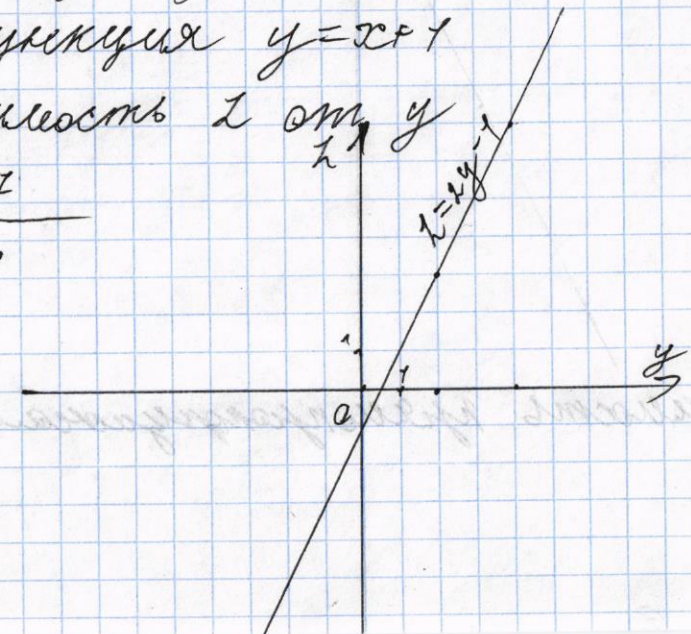 ункция y=x+1
имость z от y
z
z=2y-1
1
1
y
0